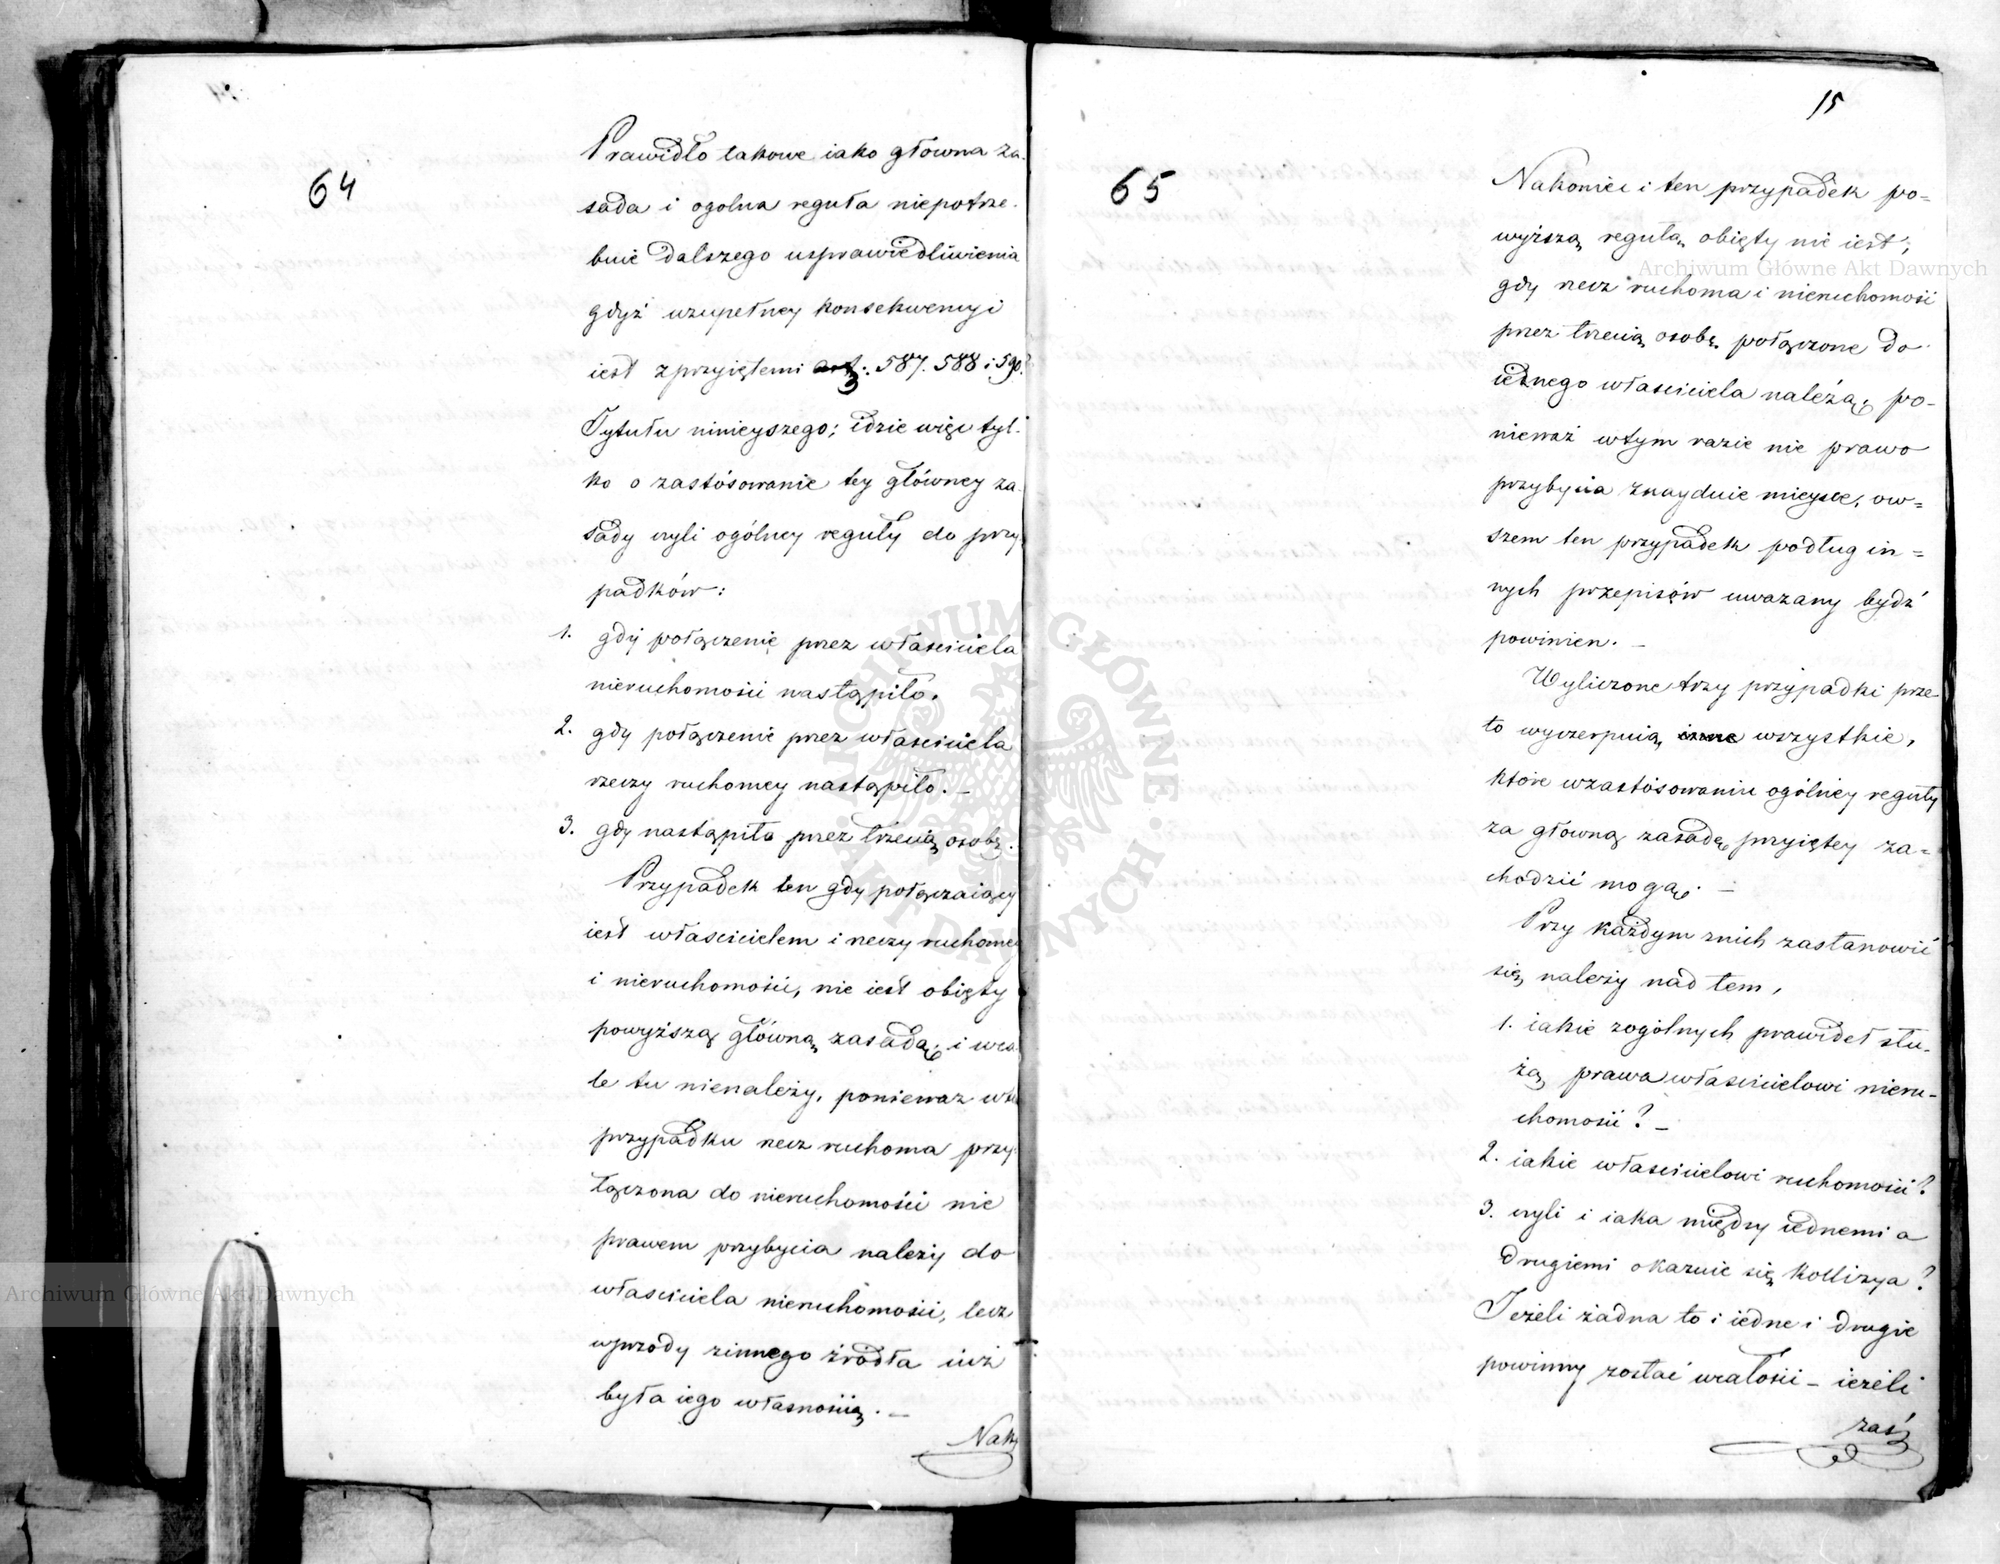 64
Prawidło takowe iako główna za-
sada i ogolna reguła niepotrze-
buie dalszego usprawiedliwienia
gdyż wzupełney konsekwencyi
iest zprzyiętemi art: 587. 588 i 590.
Tytułu ninieyszego; idzie więc tyl-
ko o zastósowanie tey główney za-
sady czyli ogólney reguły do przy
padków:
1. gdy połączenie przez właściciela
nieruchomości nastąpiło.
2. gdy połączenie przez właściciela
rzeczy ruchomey nastąpiło. —
3. gdy nastąpiło przez trzecią osobę.
Przypadek ten gdy połączaiący
iest właścicielem i rzeczy ruchomey
i nieruchomości, nie iest obięty
powyższą główną zasadą; i wca-
le tu nienależy, ponieważ wtu
przypadku rzecz ruchoma przy-
łączona do nieruchomości nie
prawem przybycia należy do
właściciela nieruchomości, lecz
wprzody zinnego źródła iuż
była iego własnością. —
Nak
15
65
Nakoniec i ten przypadek po-
wyższą regułą obięty nie iest;
gdy rzecz ruchoma i nieruchomość
przez trzecią osobę połączone do
iednego właściciela należą; po-
nieważ wtym razie nie prawo
przybycia znayduie mieysce, ow-
szem ten przypadek podług in-
nych przepisów uważany bydź
powinien. —
Wyliczone trzy przypadki prze-
to wyczerpuią inne wszystkie,
które wzastósowaniu ogólney reguły
za główną zasadę przyiętey za-
chodzić mogą. —
Przy każdym znich zastanowić
się należy nad tem,
1. iakie zogólnych prawideł słu-
żą prawa właścicielowi nieru-
chomości? —
2. iakie właścicielowi ruchomości?
3. czyli i iaka między iednemi a
drugiemi okazuie się kollizya?
Jeżeli żadna to i iedne i drugie
powinny zostać wcałości — ieżeli
zaś
Archiwum Główne Akt Dawnych
Archiwum Główne Akt Dawnych
ARCHIWUM GŁÓWNE · AKT DAWNYCH ·